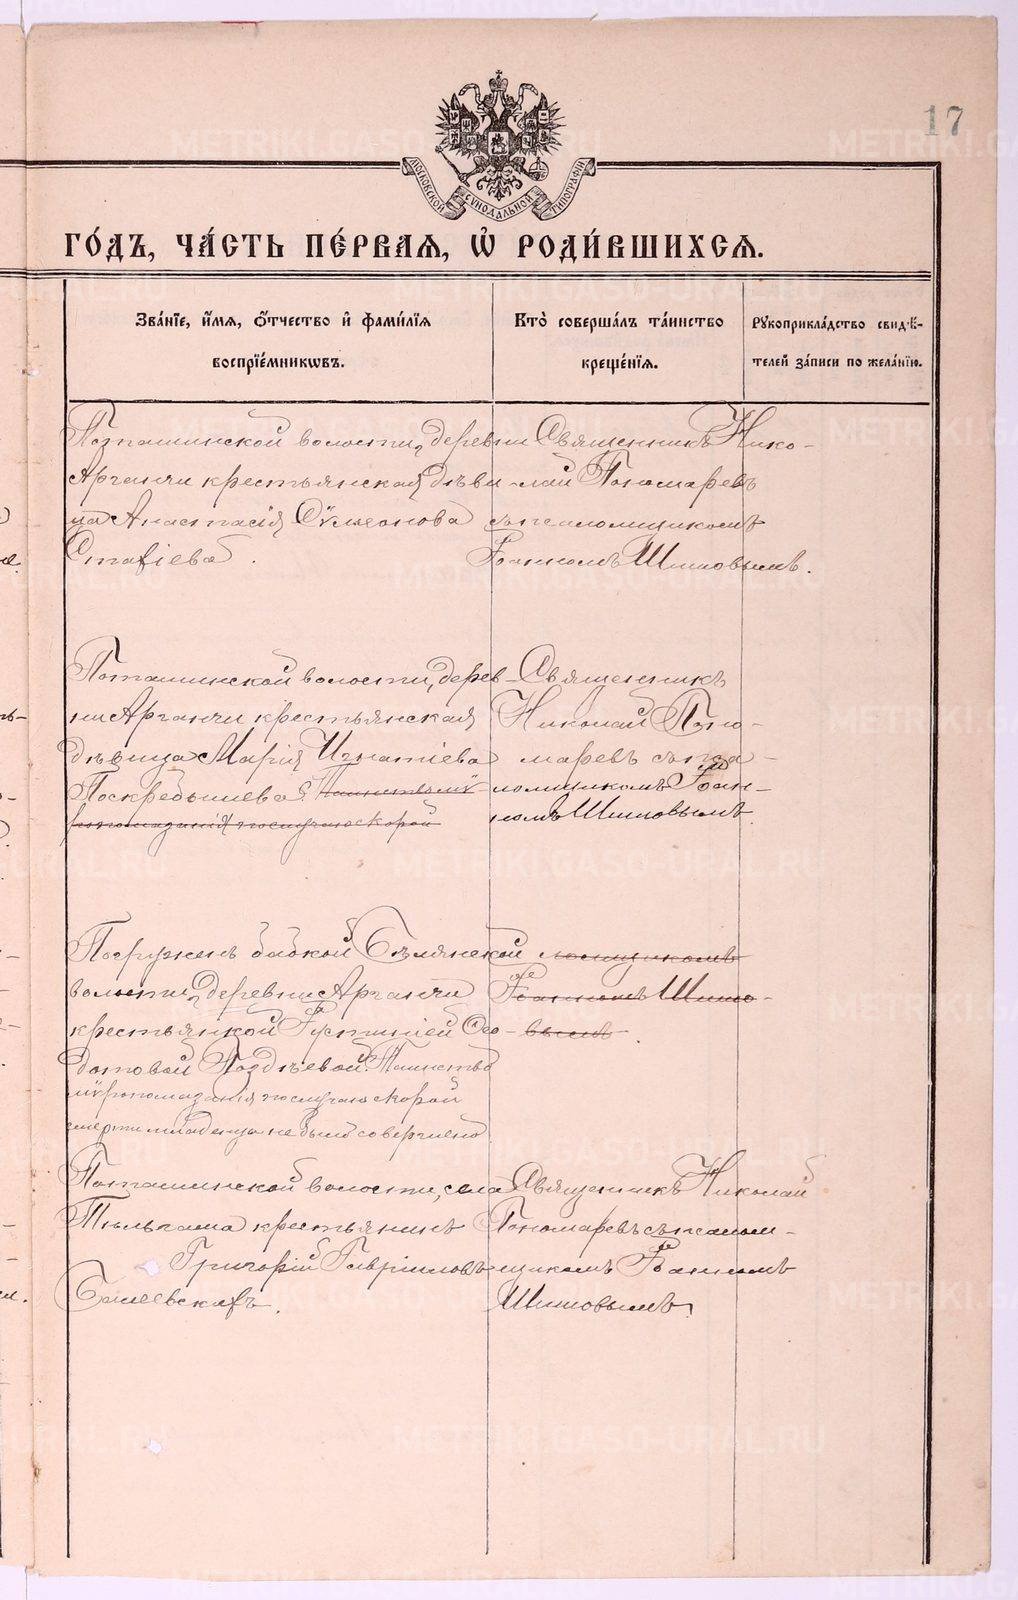 17
МОСКОВСКОЙ СУНОДАЛЬНОЙ ТИПОГРАФІИ
ГО́ДЪ, ЧА́СТЬ ПЕ́РВАЯ, Ѿ РОДИ́ВШИХСЯ.
Зва́нїе, и҆́мя, ѻ҆́тчество и҆ фами́лїя
воспрїе́мникѡвъ.
Кто̀ соверша́лъ та́инство
креще́нїя.
Рукоприкла́дство свидѣ́-
телей за́писи по жела́нїю.
Поташинской волости, деревни
Арганчи крестьянская дѣви
ца Анастасія Сѵмеонова
Стафіева.
Священникъ Нико-
лай Пономаревъ
съ псаломщикомъ
Іоанномъ Шишовымъ.
Поташинской волости, дерев-
ни Арганчи крестьянская
дѣвица Марія Игнатіева
Поскребышева. Таинство мѵ
ропомазанія по случаю скорой
Священникъ
Николай Поно-
маревъ съ пса-
ломщикомъ Іоан-
номъ Шишовымъ.
Погруженъ бабкой
волости, деревни Арганчи
крестьянкой Іустиніей Ѳео-
дотовой Поздѣевой. Таинство
мѵропомазанія по случаю скорой
смерти младенца не было совершено
ломщикомъ
Іоанномъ Шишо-
вымъ.
Поташинской волости, села
крестьянинъ
Григорій Гавриловъ
Священникъ Николай
Пономаревъ съ псалом-
щикомъ Іоанномъ
Шишовымъ.
METRIKI.GASO-URAL.RU